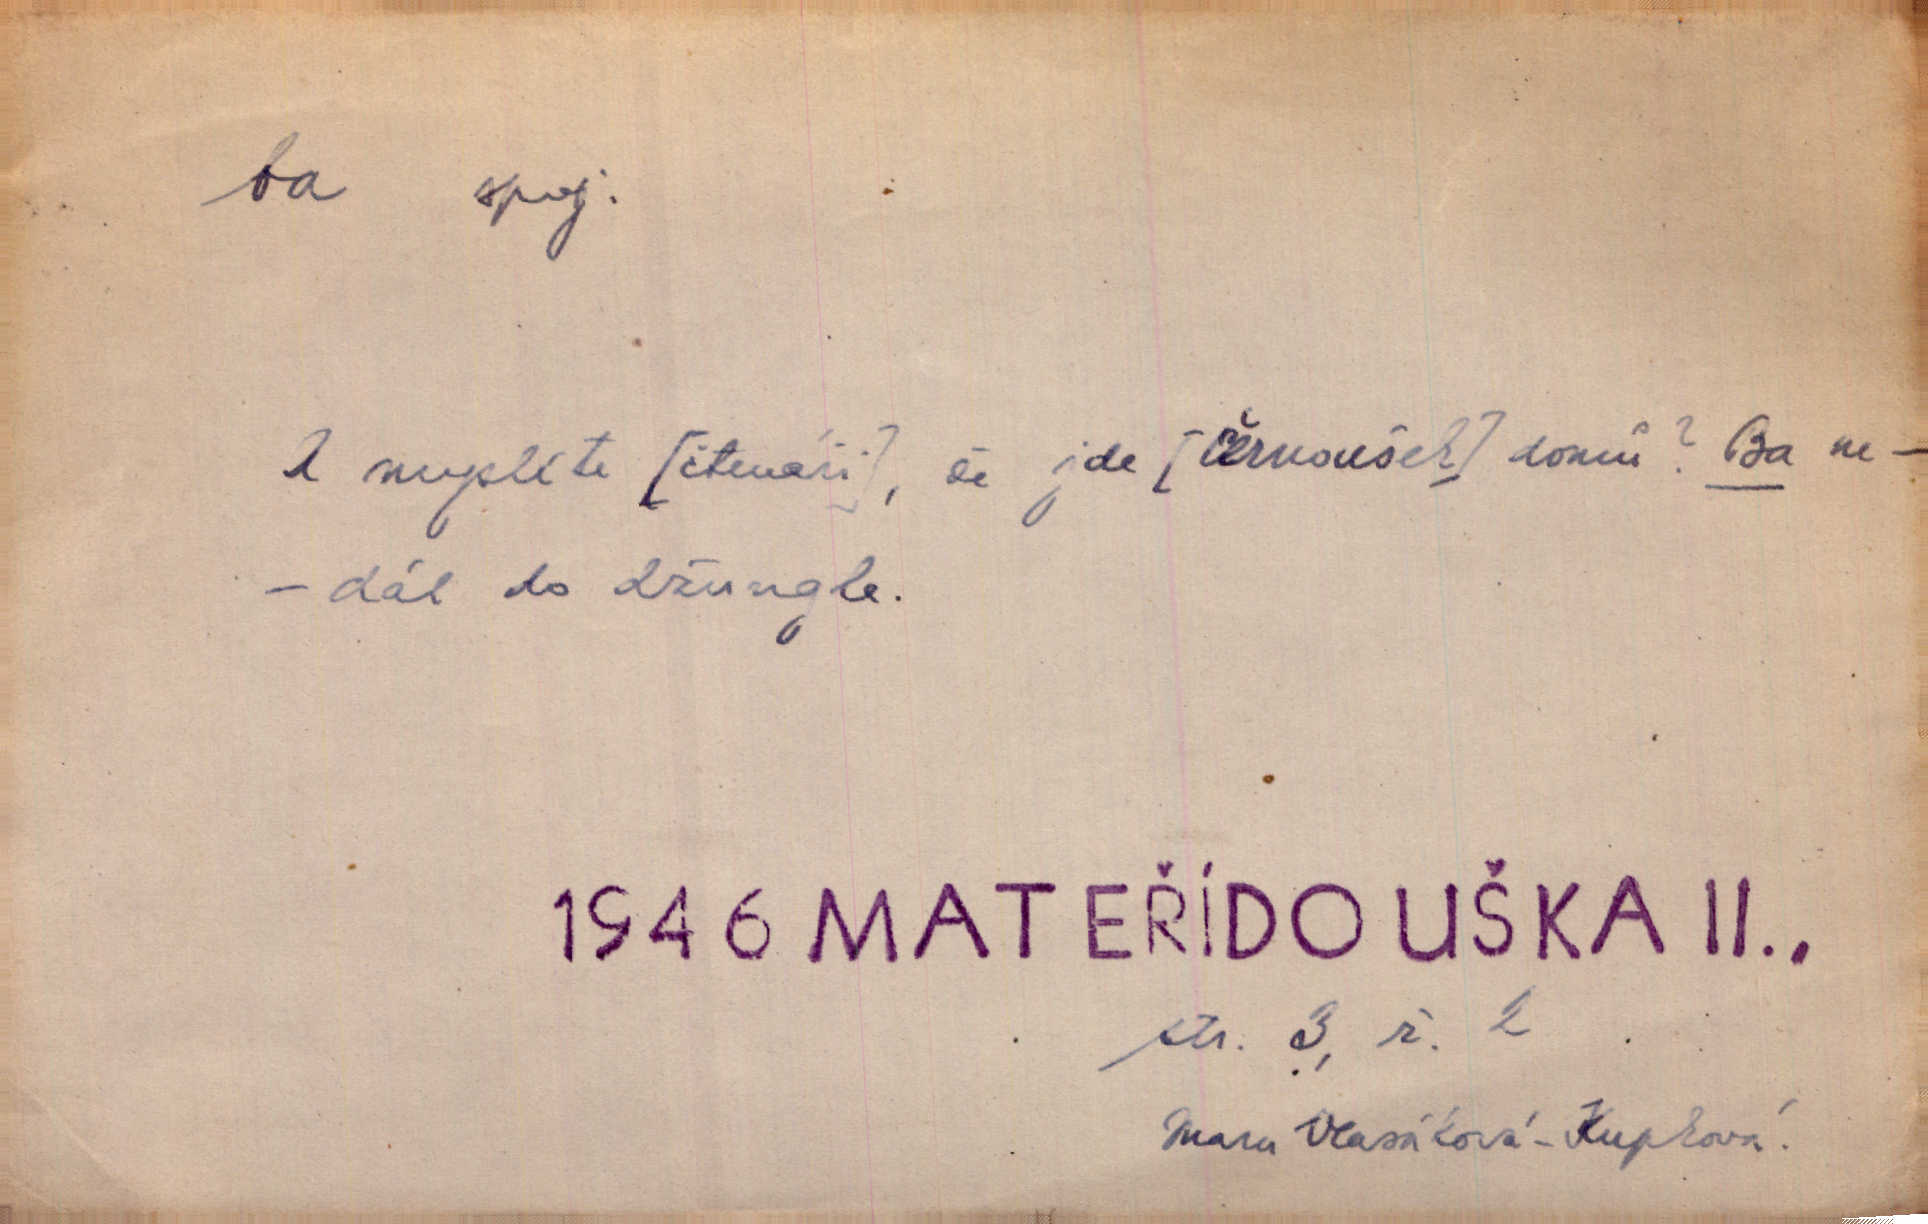 ba spoj.
A myslíte [čtenáři], že jde [černoušek] domů? Ba ne –
– dál do džungle.
1946 MATEŘÍDOUŠKA II.,
str. 3, ř. 2
Vlasáková - Kupková.